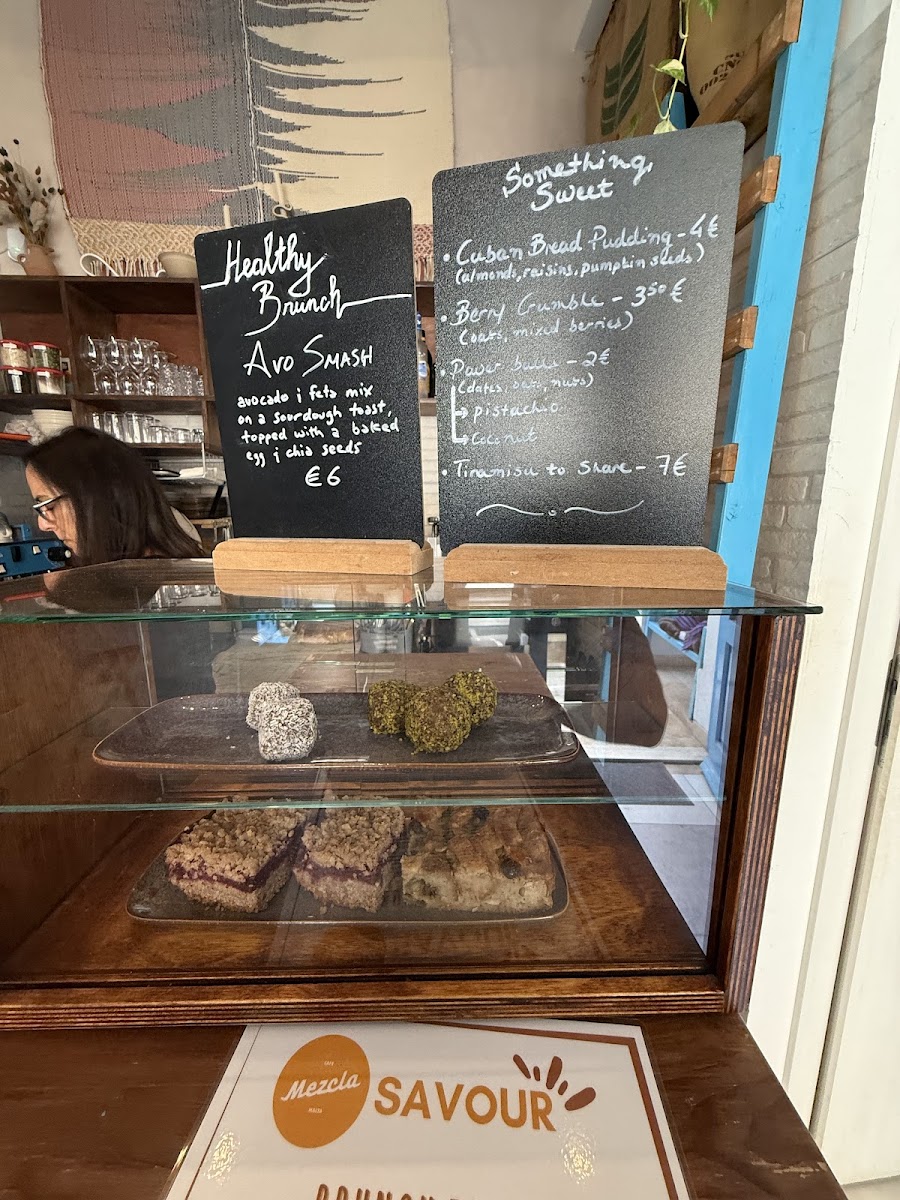 Healthy
Brunch
AVO SMASH
avocado i feta mix
on a sourdough toast,
topped with a baked
egg i chia seeds
€6
Something
Sweet
• Cuban Bread Pudding - 4€
(almonds, raisins, pumpkin seeds)
• Berry Crumble - 3⁵⁰ €
(oats, mixed berries)
• Power balls - 2€
(dates, oats, nuts)
→ pistachio
→ Coconut
• Tiramisu to share - 7€
CAFE
Mezcla
MALTA
SAVOUR